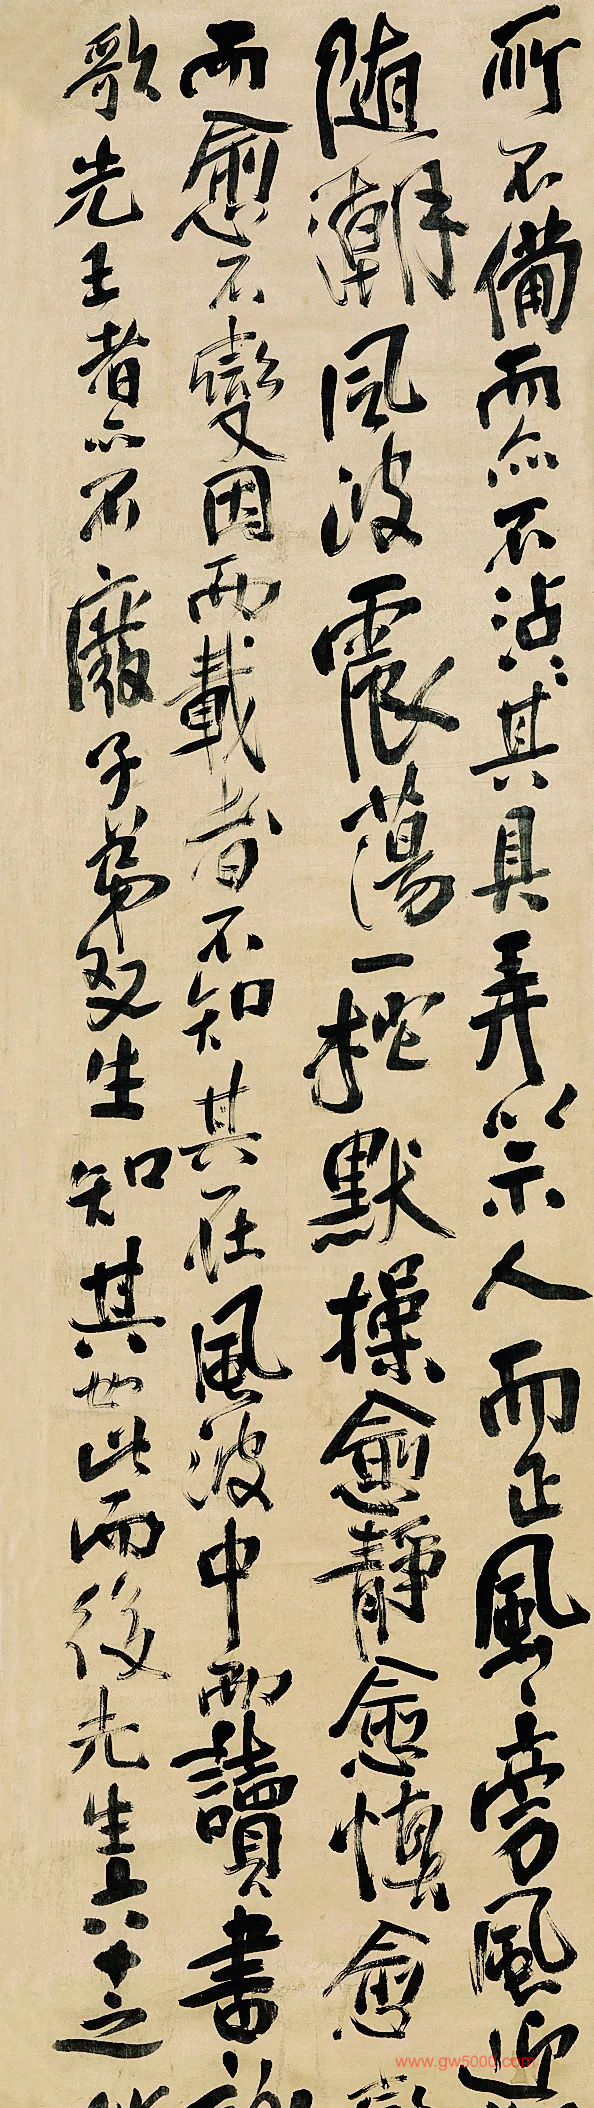 所不備而亦不沾沾其具弄以示人而正風旁風迎
随潮風波震蕩一柁默操愈靜愈慎愈
而愈不變因而載者不知其在風波中而讀書
歌先王者亦不廢子弟父生知其如此而後先生六十之
www.gw5000.com